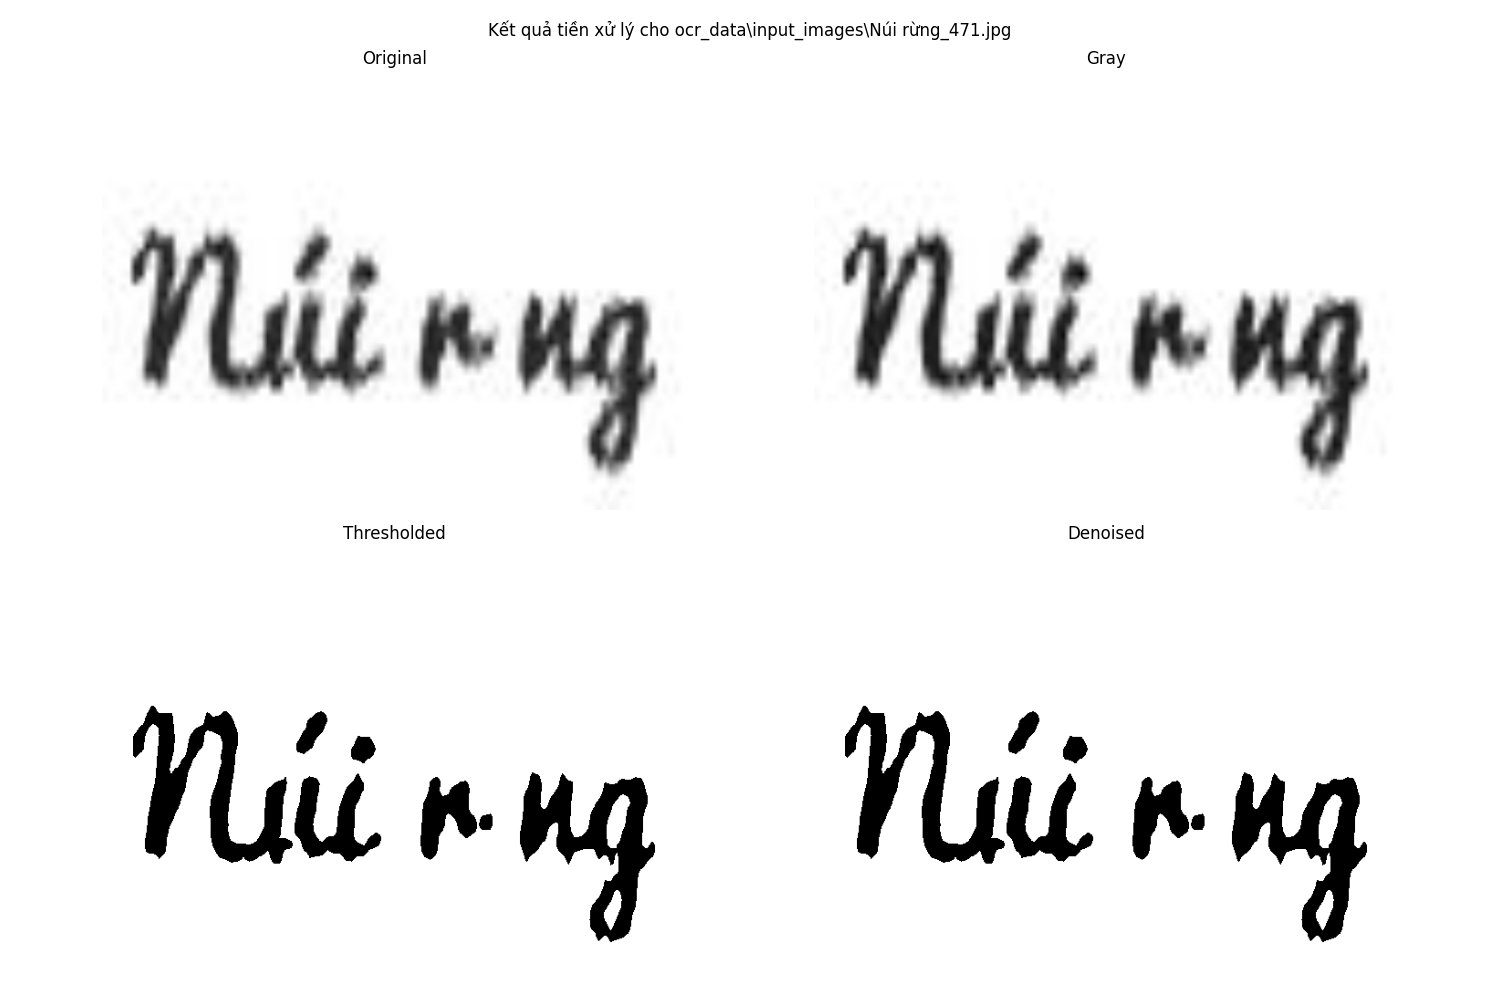 Kết quả tiền xử lý cho ocr_data\input_images\Núi rừng_471.jpg
Original
Gray
Núi r ng
Núi r ng
Thresholded
Denoised
Núi r ng
Núi r ng